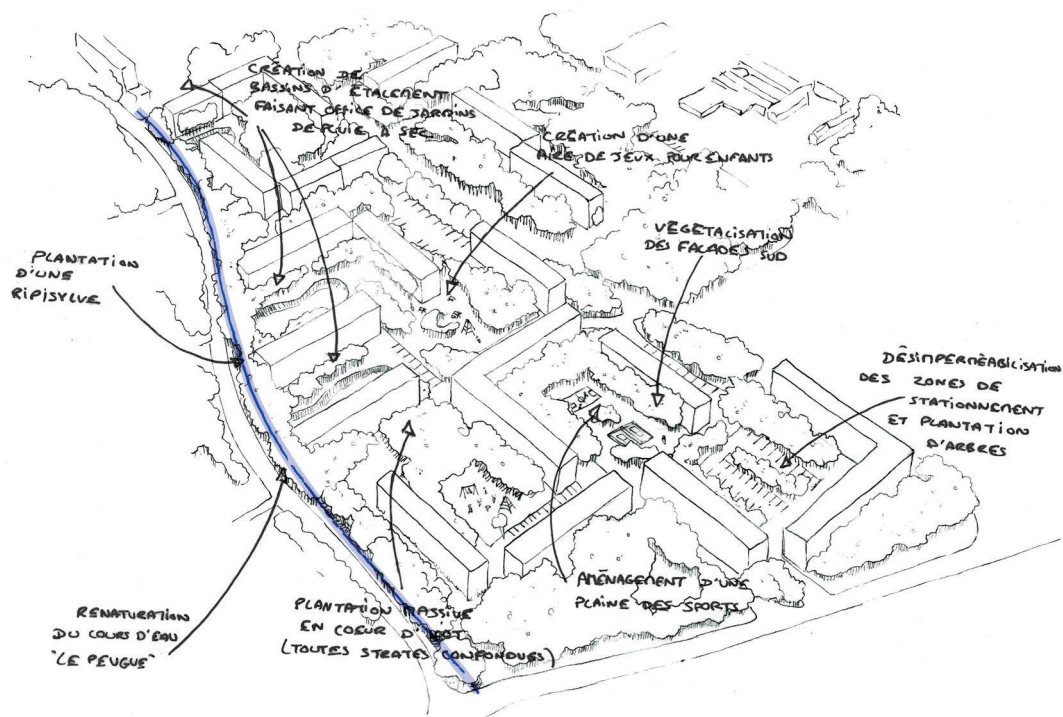 CRÉATION DE
BASSINS D'ÉTALEMENT
FAISANT OFFICE DE JARDINS
DE PLUIE À SEC
CRÉATION D'UNE
AIRE DE JEUX POUR ENFANTS
VÉGÉTALISATION
DES FAÇADES SUD
PLANTATION
D'UNE
RIPISYLVE
DÉSIMPERMÉABILISATION
DES ZONES DE
STATIONNEMENT
ET PLANTATION
D'ARBRES
RENATURATION
DU COURS D'EAU
"LE PEUGUE"
PLANTATION MASSIVE
EN COEUR D'ÎLOT
(TOUTES STRATES CONFONDUES)
AMÉNAGEMENT D'UNE
PLAINE DES SPORTS